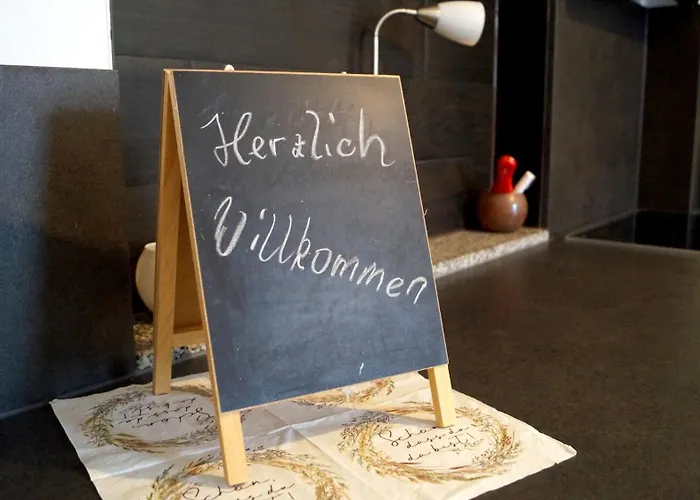 Herzlich
Willkommen
Schön,
dass du
da bist!
Schön,
dass da